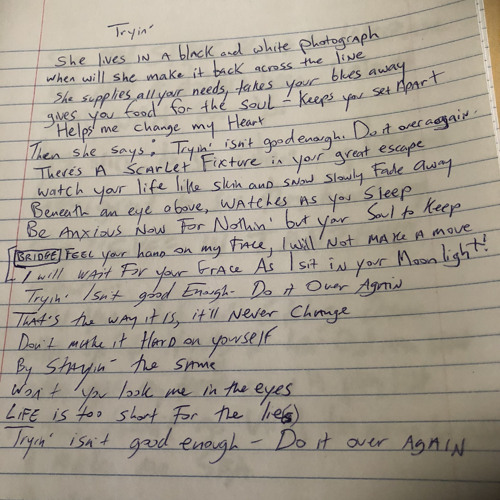 Tryin'
She lives in a black and white photograph
when will she make it back across the line
She supplies all your needs, takes your blues away
gives you food for the soul - keeps you set Apart
Helps me change my Heart
Then she says: Tryin' isn't good enough. Do it over again.
There's A Scarlet Fixture in your great escape
watch your life like skin and snow slowly Fade Away
Beneath an eye above, watches as you sleep
Be Anxious Now For Nothin' but your Soul to Keep
BRIDGE Feel your hand on my Face, I will Not make A move
I will wait For your Grace As I sit in your Moonlight!
Tryin' Isn't good Enough - Do it Over Again
That's the way it is, it'll Never Change
Don't make it Hard on yourself
By Stayin' the same
Won't you look me in the eyes
LIFE is too short For the lie(s)
Tryin' isn't good enough - Do it over AGAIN